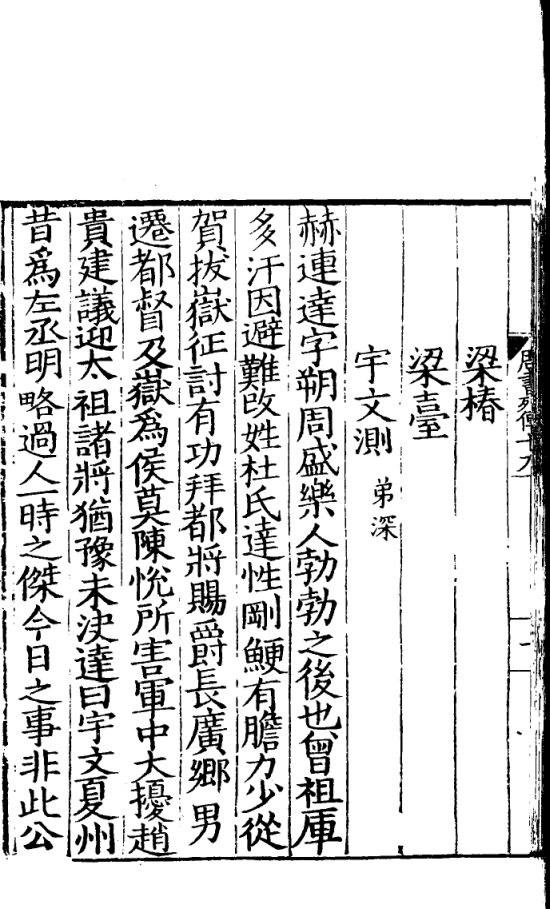 周書列傳十九
梁椿
梁臺
宇文測 弟深
赫連達字朔周盛樂人勃勃之後也曾祖庫
多汗因避難改姓杜氏達性剛鯁有膽力少從
賀拔嶽征討有功拜都將賜爵長廣鄉男
遷都督及嶽爲侯莫陳悅所害軍中大擾趙
貴建議迎太祖諸將猶豫未決達曰宇文夏州
昔爲左丞明略過人一時之傑今日之事非此公